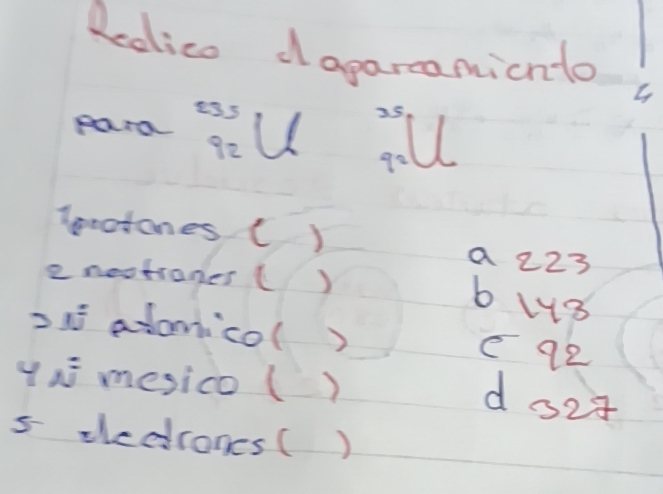 Realico el apareamiento
para ²³⁵₉₂U ²³⁵₉₂U
1 protones ( )
2 neotrones ( )
3 Nº atomico ( )
4 Nº mesico ( )
5 electrones ( )
a 223
b 143
c 92
d 327